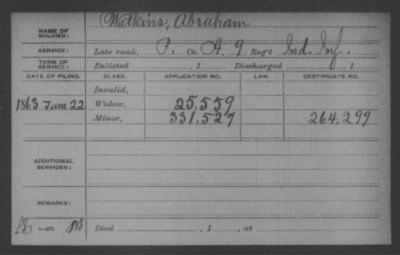 NAME OF SOLDIER: Watkins, Abraham
SERVICE: Late rank, P. Co. A, 9 Reg't Ind. Inf.
TERM OF SERVICE: Enlisted , 1 Discharged , 1
DATE OF FILING. CLASS. APPLICATION NO. LAW. CERTIFICATE NO.
Invalid,
1863 June 22 Widow, 25.559
Minor, 331.527 264.299
ADDITIONAL SERVICES:
REMARKS:
Died , 1 , at